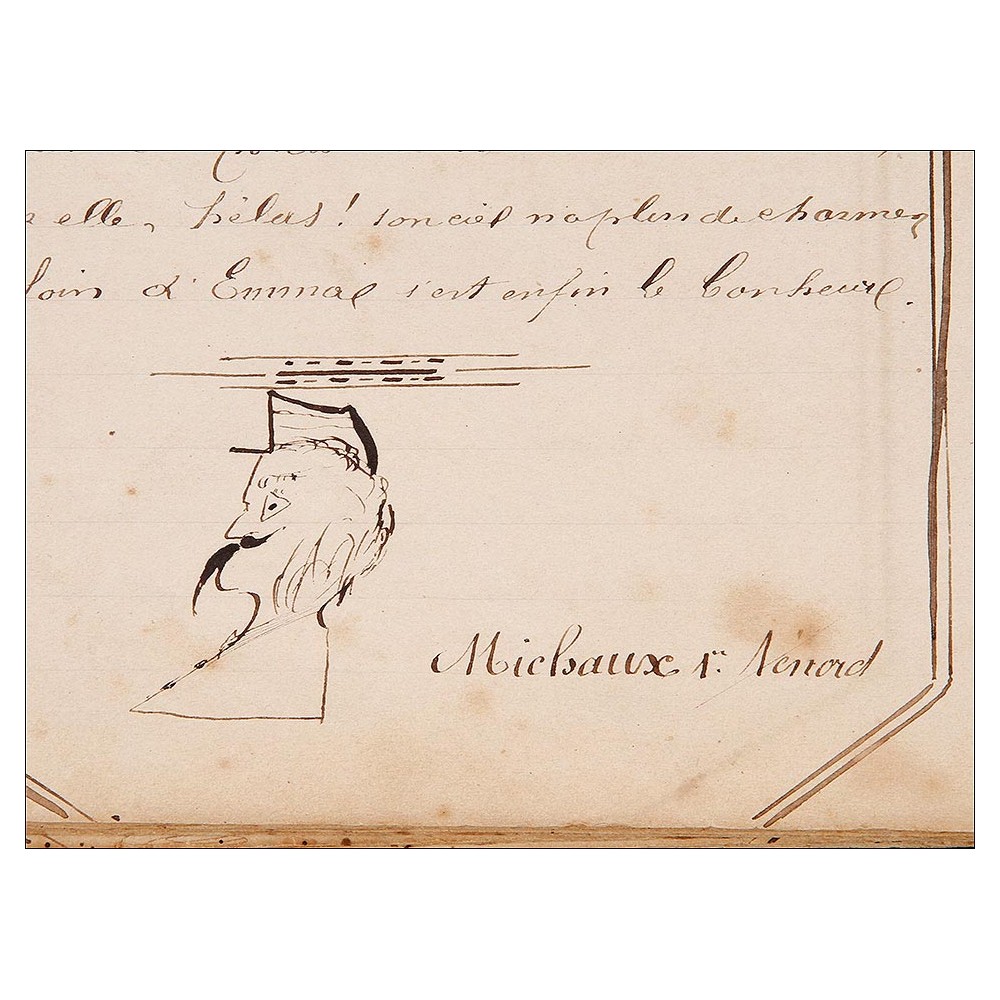 elle, hélas! son ciel n'a plus de charmes
loin d'Emmal c'est enfin le bonheur.
Michaux 1er ténord